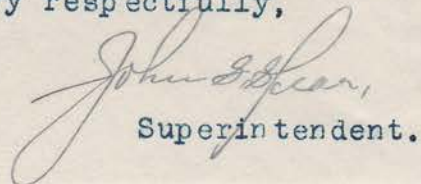 y respectfully,
John S. Spear,
Superintendent.